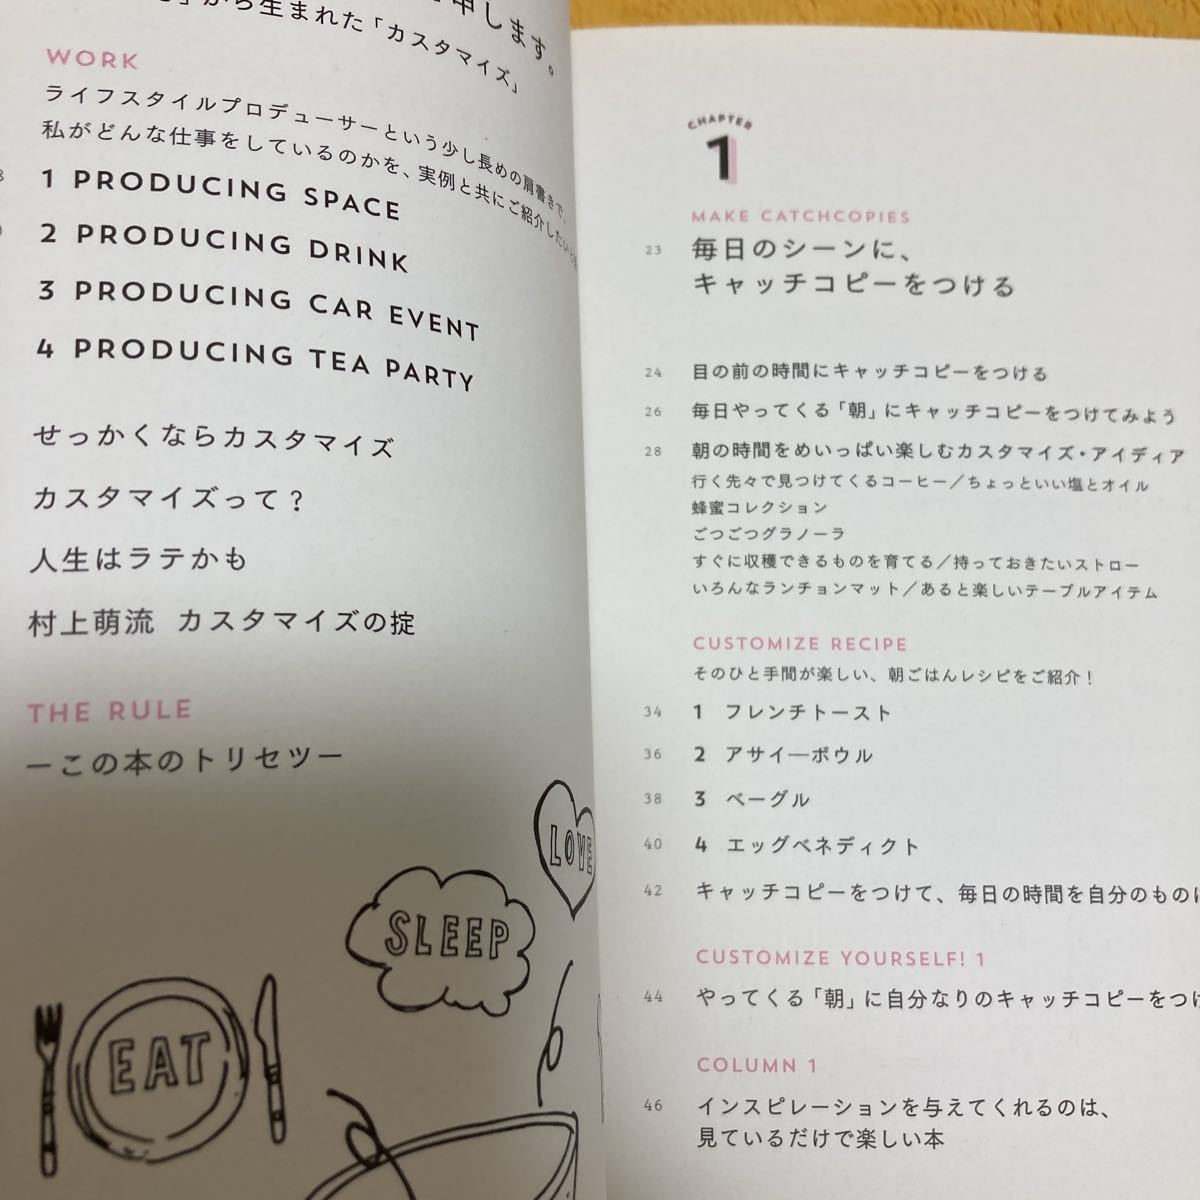 申します。
から生まれた「カスタマイズ」
WORK
ライフスタイルプロデューサーという少し長めの肩書きで、
私がどんな仕事をしているのかを、実例と共にご紹介したいと
1 PRODUCING SPACE
2 PRODUCING DRINK
3 PRODUCING CAR EVENT
4 PRODUCING TEA PARTY
せっかくならカスタマイズ
カスタマイズって?
人生はラテかも
村上萌流 カスタマイズの掟
THE RULE
ーこの本のトリセツー
LOVE
SLEEP
EAT
CHAPTER
1
MAKE CATCHCOPIES
23 毎日のシーンに、
キャッチコピーをつける
24 目の前の時間にキャッチコピーをつける
26 毎日やってくる「朝」にキャッチコピーをつけてみよう
28 朝の時間をめいっぱい楽しむカスタマイズ・アイディア
行く先々で見つけてくるコーヒー/ちょっといい塩とオイル
蜂蜜コレクション
ごつごつグラノーラ
すぐに収穫できるものを育てる/持っておきたいストロー
いろんなランチョンマット/あると楽しいテーブルアイテム
CUSTOMIZE RECIPE
そのひと手間が楽しい、朝ごはんレシピをご紹介!
34 1 フレンチトースト
36 2 アサイーボウル
38 3 ベーグル
40 4 エッグベネディクト
42 キャッチコピーをつけて、毎日の時間を自分のもの
CUSTOMIZE YOURSELF! 1
44 やってくる「朝」に自分なりのキャッチコピーをつけ
COLUMN 1
46 インスピレーションを与えてくれるのは、
見ているだけで楽しい本